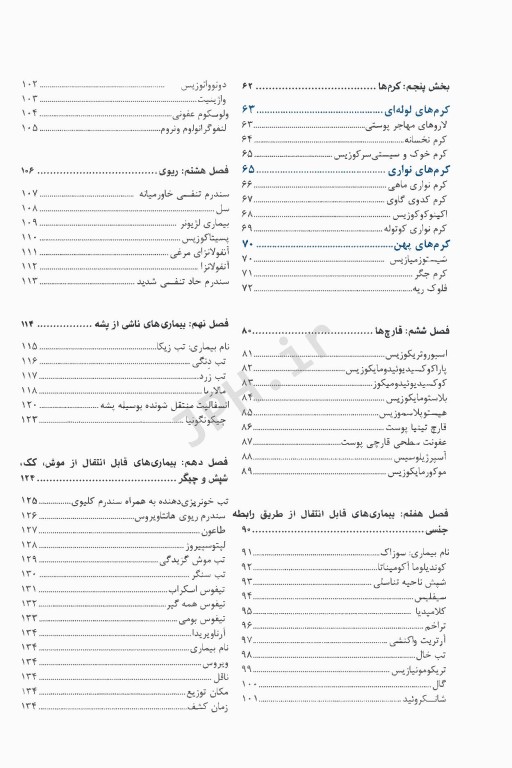 بخش پنجم: کرم‌ها ..... ۶۲
کرم‌های لوله‌ای ..... ۶۳
لاروهای مهاجر پوستی ..... ۶۳
کرم نخسانه ..... ۶۴
کرم خوک و سیستی‌سرکوزیس ..... ۶۵
کرم‌های نواری ..... ۶۵
کرم نواری ماهی ..... ۶۶
کرم کدوی گاوی ..... ۶۷
اکینوکوکوزیس ..... ۶۸
کرم نواری کوتوله ..... ۶۹
کرم‌های پهن ..... ۷۰
شیستوزمیازیس ..... ۷۰
کرم جگر ..... ۷۱
فلوک ریه ..... ۷۲
فصل ششم: قارچ‌ها ..... ۸۰
اسپوروتریکوزیس ..... ۸۱
پاراکوکسیدیوئیدومایکوزیس ..... ۸۲
کوکسیدیوئیدومیکوز ..... ۸۳
بلاستومایکوزیس ..... ۸۴
هیستوپلاسموزیس ..... ۸۵
قارچ تینیا پوست ..... ۸۶
عفونت سطحی قارچی پوست ..... ۸۷
آسپرژیلوسیس ..... ۸۸
موکورمایکوزیس ..... ۸۹
فصل هفتم: بیماری‌های قابل انتقال از طریق رابطه
جنسی ..... ۹۰
نام بیماری: سوزاک ..... ۹۱
کوندیلوما آکومیناتا ..... ۹۲
شپش ناحیه تناسلی ..... ۹۳
سیفلیس ..... ۹۴
کلامیدیا ..... ۹۵
تراخم ..... ۹۶
آرتریت واکنشی ..... ۹۷
تب خال ..... ۹۸
تریکومونیازیس ..... ۹۹
گال ..... ۱۰۰
شانکروئید ..... ۱۰۱
دونووانوزیس ..... ۱۰۲
واژینیت ..... ۱۰۳
مولوسکوم عفونی ..... ۱۰۴
لنفوگرانولوم ونروم ..... ۱۰۵
فصل هشتم: ریوی ..... ۱۰۶
سندرم تنفسی خاورمیانه ..... ۱۰۷
سل ..... ۱۰۸
بیماری لژیونر ..... ۱۰۹
پسیتاکوزیس ..... ۱۱۰
آنفولانزای مرغی ..... ۱۱۱
آنفولانزا ..... ۱۱۲
سندرم حاد تنفسی شدید ..... ۱۱۳
فصل نهم: بیماری‌های ناشی از پشه ..... ۱۱۴
نام بیماری: تب زیکا ..... ۱۱۵
تب دِنگی ..... ۱۱۶
تب زرد ..... ۱۱۷
مالاریا ..... ۱۱۸
انسفالیت منتقل شونده بوسیله پشه ..... ۱۲۰
چیکونگونیا ..... ۱۲۳
فصل دهم: بیماری‌های قابل انتقال از موش، کک،
شپش و چیگر ..... ۱۲۴
تب خونریزی‌دهنده به همراه سندرم کلیوی ..... ۱۲۵
سندرم ریوی هانتاویروس ..... ۱۲۶
طاعون ..... ۱۲۷
لپتوسپیروز ..... ۱۲۸
تب موش گزیدگی ..... ۱۲۹
تب سنگر ..... ۱۳۰
تیفوس اسکراب ..... ۱۳۱
تیفوس همه گیر ..... ۱۳۲
تیفوس بومی ..... ۱۳۳
آرناویریدا ..... ۱۳۴
نام بیماری ..... ۱۳۴
ویروس ..... ۱۳۴
ناقل ..... ۱۳۴
مکان توزیع ..... ۱۳۴
زمان کشف ..... ۱۳۴